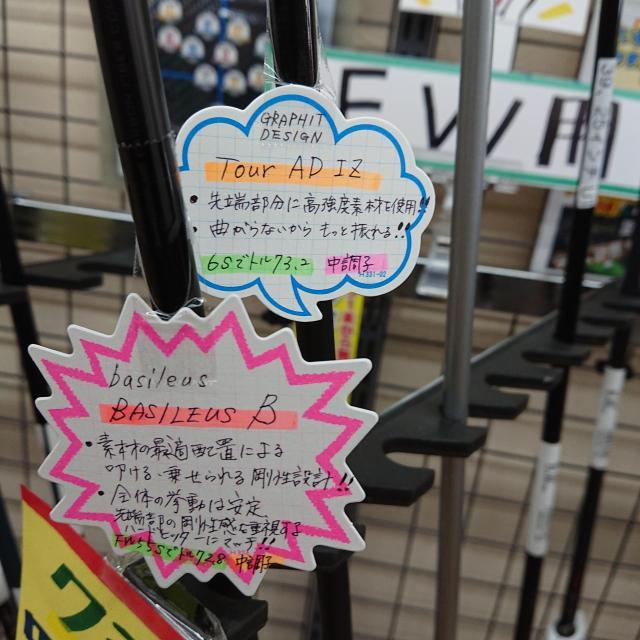 FW用
GRAPHIT
DESIGN
Tour AD IZ
・先端部分に高強度素材を使用!!
・曲がらないから もっと振れる!!
6Sでトルク3.2 中調子
basileus
BASILEUS β
・素材の最適配置による
叩ける・乗せられる剛性設計!!
・全体の挙動は安定
先端部の剛性感を重視する
ハードヒッターにマッチ!!
FW 55Sでトルク3.8 中調子